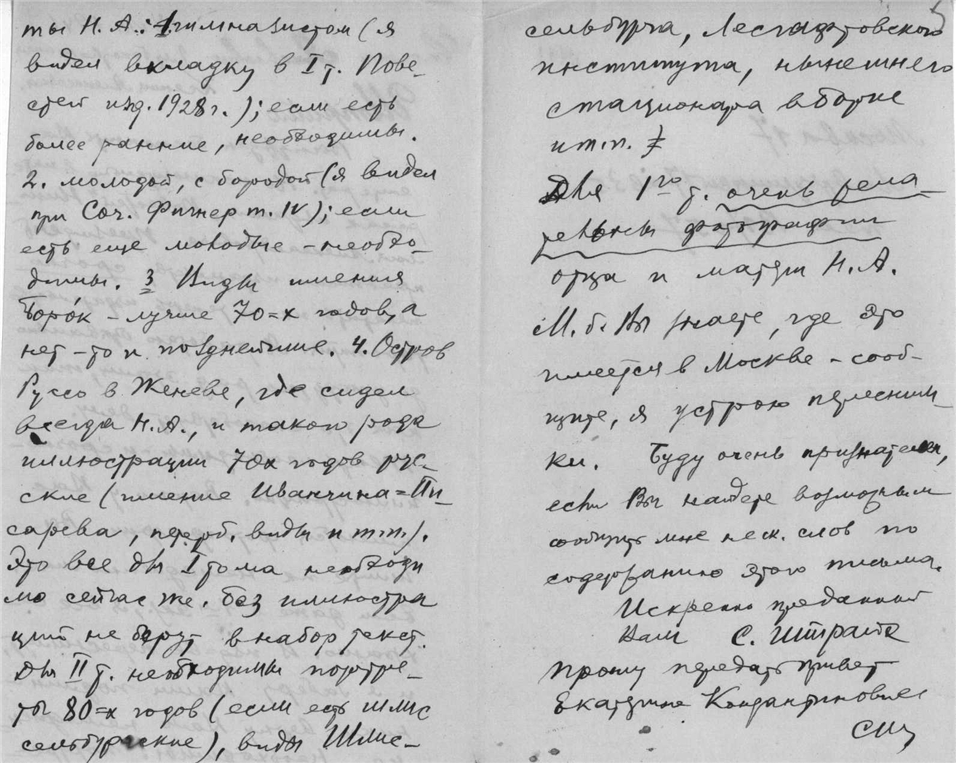 ты Н. А.: 1 гимназистом (я
видел вкладку в I т. Пове-
стей изд. 1928 г.); если есть
более ранние, необходимы.
2. молодой, с бородой (я видел
при Соч. Фигнер т. IV); если
есть еще молодые - необхо
димы. 3 Виды имения
Борóк - лучше 70=х годов, а
нет - то и позднейшие. 4. Остров
Руссо в Женеве, где сидел
всегда Н. А., и такого рода
иллюстрации 70х годов рус-
ские (имение Иванчина=Пи-
сарева, петерб. виды и т.п.).
Это все для I тома необходи
мо сейчас же. Без иллюстра
ций не берут в набор текст.
Для II т. необходимы портре-
ты 80=х годов (если есть шлис
сельбургские), виды Шлис-
5
сельбурга, Лесгафтовского
института, нынешнего
стационара в Борке
и т.п.
Для 1го т. очень жела-
тельны фотографии
отца и матери Н. А.
М. б. Вы знаете, где это
имеется в Москве - сооб-
щите, я устрою пересъем-
ки. Буду очень признателен,
если Вы найдете возможным
сообщить мне неск. слов по
содержанию этого письма.
Искренно преданный
Вам С. Штрайх
Прошу передать привет
Екатерине Константиновне
СШ